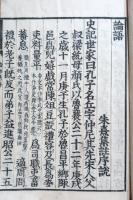 論語
朱熹集註序說
史記世家曰孔子名丘字仲尼其先宋人父
叔梁紇母顏氏以魯襄公二十二年庚戌
之歲十一月庚子生孔子於魯昌平鄉陬
邑爲兒嬉戲常陳俎豆設禮容及長爲委
吏料量平 爲司職吏畜
蕃息 適周問
禮於老子既反而弟子益進昭公二十五